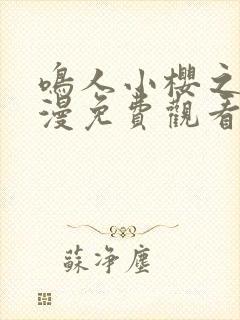 鳴人小櫻之
漫免費觀看
蘇净塵